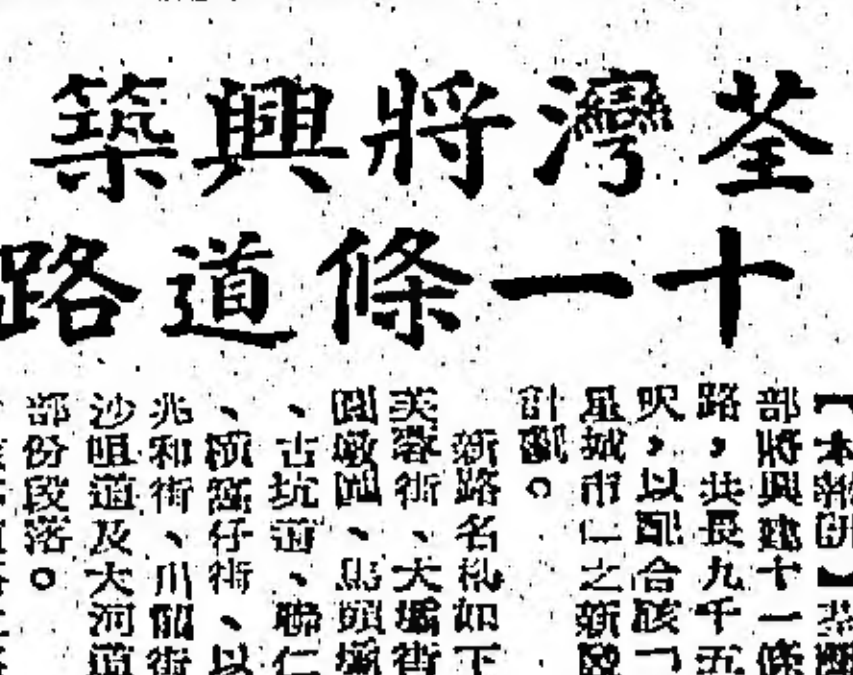 荃灣將興築
十一條道路
【本報訊】荃灣
部將興建十一條
路，共長九千五
呎，以配合該「
星城市」之新發
計劃。
新路名稱如下
芙蓉街、大壩街
圓墩圍、馬頭壩
、古坑道、聯仁
、橫窩仔街、以
兆和街、川龍街
沙咀道及大河道
部份段落。